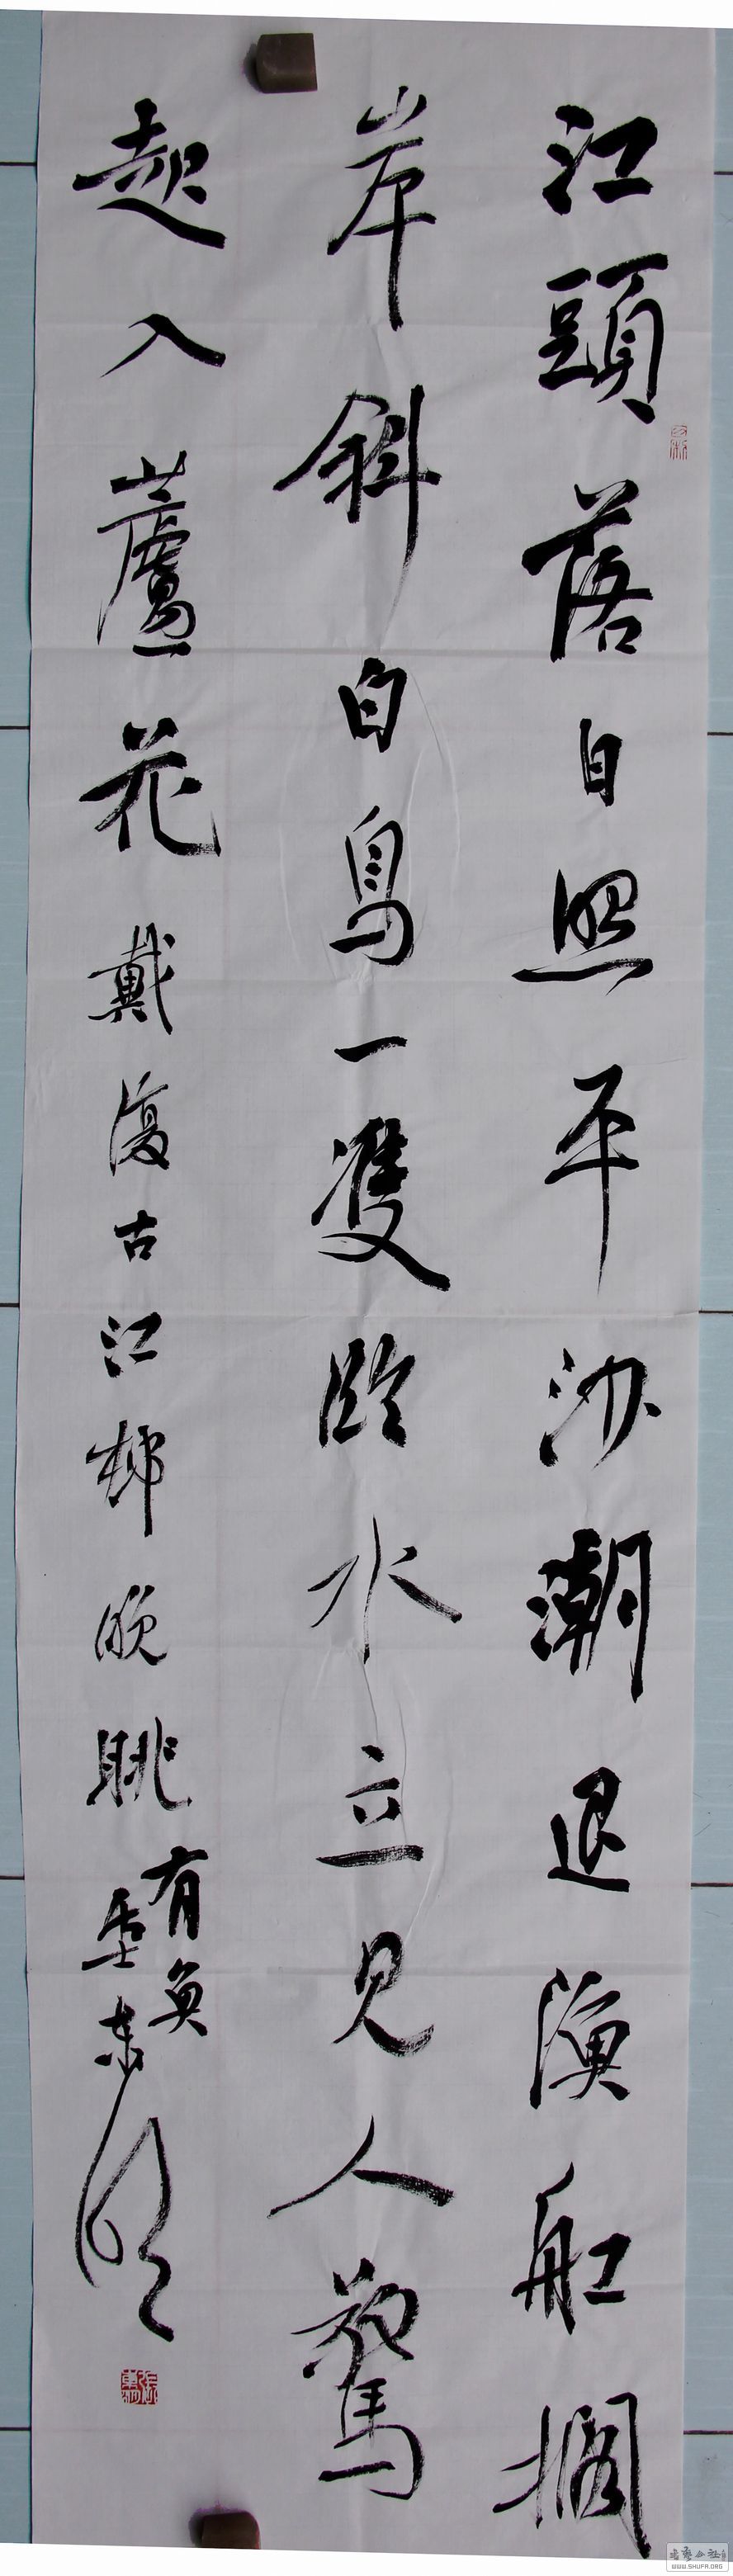 江頭落日照平沙潮退漁舡擱
岸斜白鳥一雙臨水立見人驚
起入蘆花戴復古江村晚眺
有奐
WWW.SHUFA.ORG